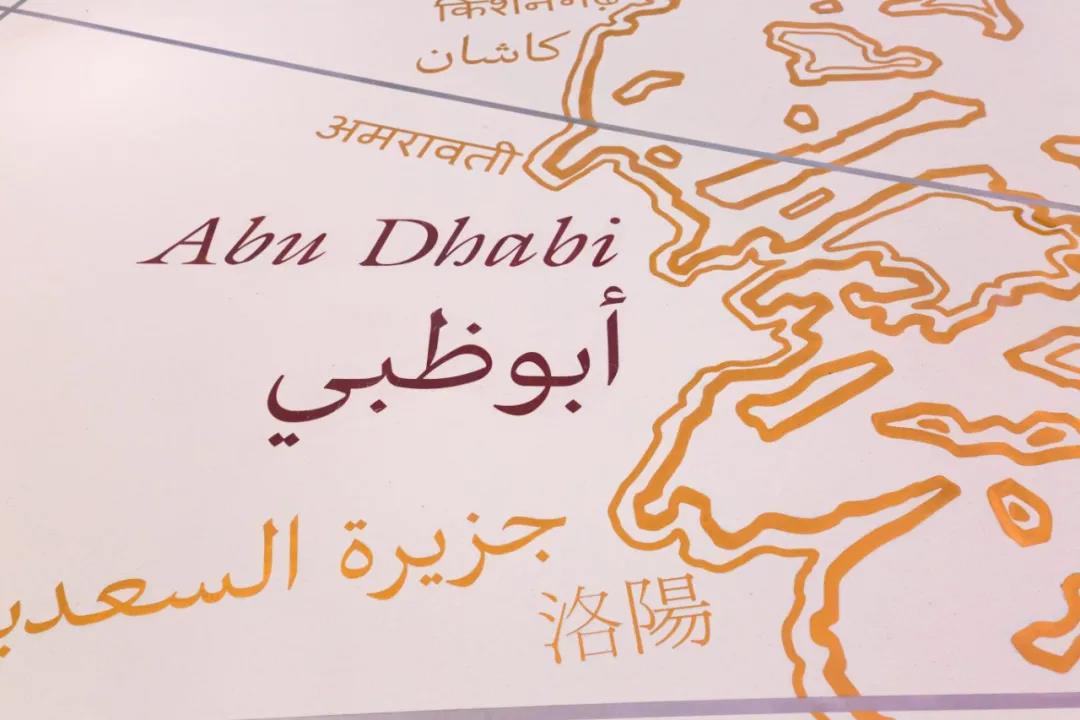 किशनगढ़
كاشان
अमरावती
Abu Dhabi
أبوظبي
جزيرة السعدي
洛陽